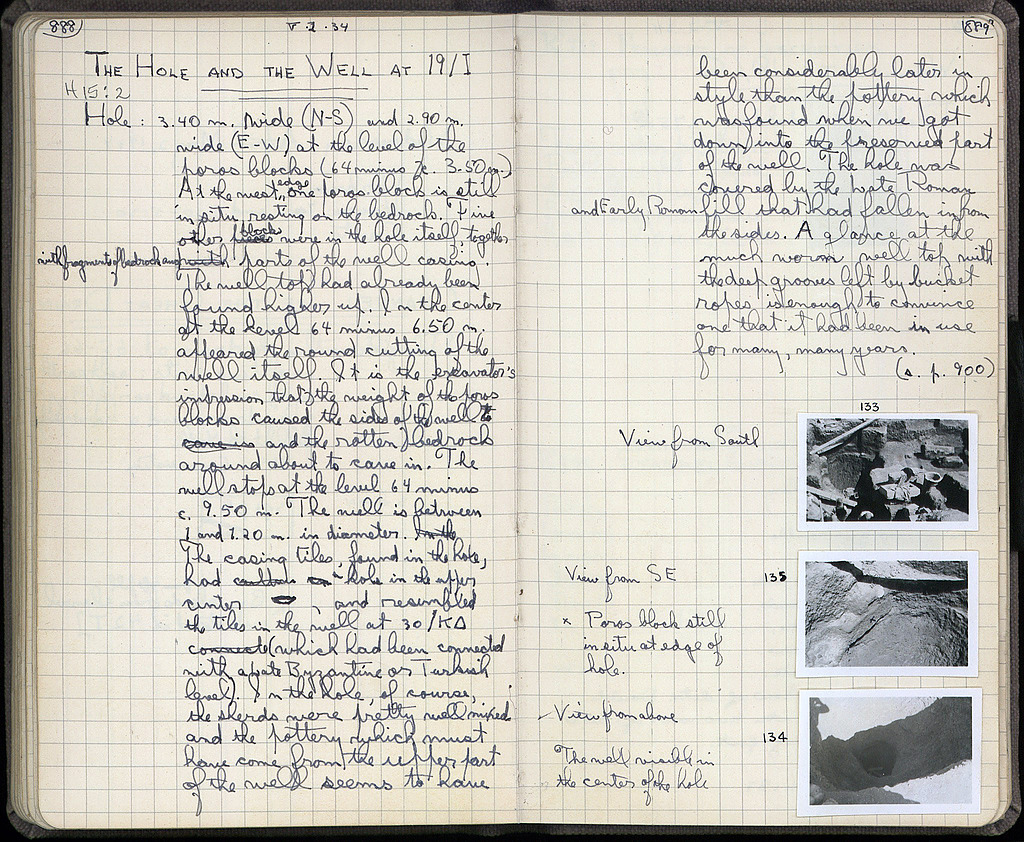 888
V-2-34
THE HOLE AND THE WELL AT 19/I
H 15:2
Hole: 3.40 m. wide (N-S) and 2.90 m.
wide (E-W) at the level of the
poros blocks (64 minus c. 3.50 m.)
At the west edge, one poros block is still
in situ, resting on the bedrock. Five
other blocks were in the hole itself together
with fragments of bedrock and parts of the well casing.
The well top had already been
found higher up. In the center
at the level 64 minus 6.50 m.
appeared the round cutting of the
well itself. It is the excavator's
impression that the weight of the poros
blocks caused the sides of the well
and the rotten bedrock
around about to cave in. The
well stops at the level 64 minus
c. 9.50 m. The well is between
1 and 1.20 m. in diameter. In the
The casing tiles, found in the hole,
had a hole in the upper
center , and resembled
the tiles in the well at 30/ΚΔ
connecte (which had been connected
with a late Byzantine or Turkish
level). In the hole, of course,
the sherds were pretty well mixed
and the pottery which must
have come from the upper part
of the well seems to have
889
been considerably later in
style than the pottery which
was found when we got
down into the preserved part
of the well. The hole was
covered by the late Roman
and Early Roman fill that had fallen in from
the sides. A glance at the
much worn well top with
the deep grooves left by bucket
ropes is enough to convince
one that it had been in use
for many, many years.
(s. p. 900)
133
View from South
View from SE 135
x Poros block still
in situ at edge of
hole.
- View from above
134
The well visible in
the center of the hole